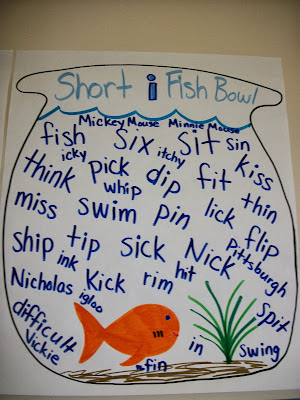 Short i Fish Bowl
Mickey Mouse Minnie Mouse
fish six sit sin
icky itchy
think pick dip fit kiss
whip thin
miss swim pin lick flip
ship tip sick Nick Pittsburgh
ink hit
Nicholas Kick rim
igloo
difficult Spit
Vickie in swing
fin